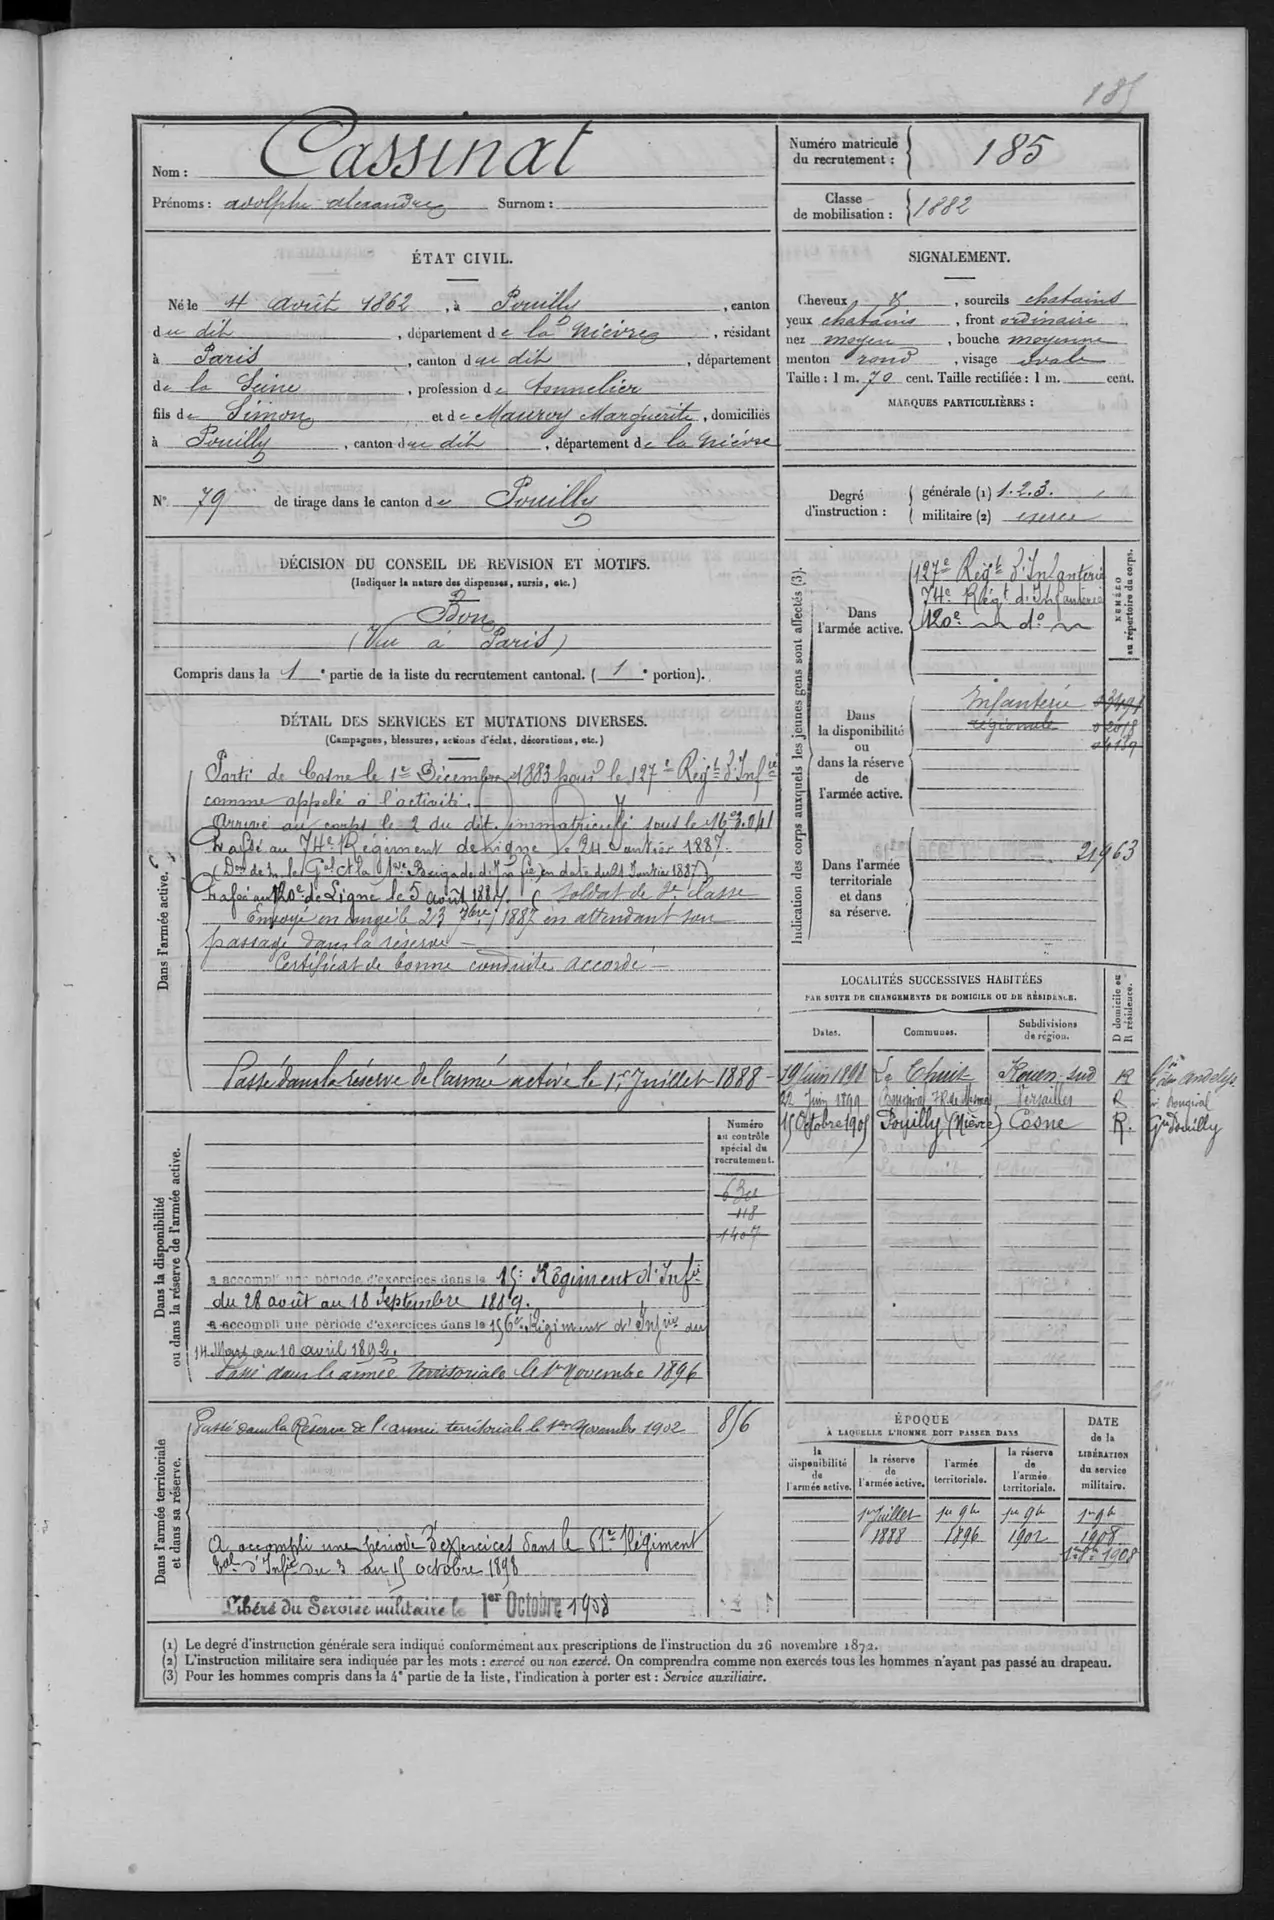 185
Nom : Cassinat
Prénoms : adolphe alexandre Surnom :
Numéro matricule du recrutement : 185
Classe de mobilisation : 1882
ÉTAT CIVIL.
Né le 4 août 1862, à Pouilly, canton
du dit, département de la Nièvre, résidant
à Paris, canton du dit, département
de la Seine, profession de tonnelier
fils de Simon et de Mauroy Marguerite, domiciliés
à Pouilly, canton du dit, département de la Nièvre
N° 79 de tirage dans le canton de Pouilly
DÉCISION DU CONSEIL DE REVISION ET MOTIFS.
(Indiquer la nature des dispenses, sursis, etc.)
Bon
(Vu à Paris)
Compris dans la 1e partie de la liste du recrutement cantonal. (1e portion).
SIGNALEMENT.
Cheveux &, sourcils chatains
yeux chatains, front ordinaire
nez moyen, bouche moyenne
menton rond, visage ovale
Taille : 1 m. 70 cent. Taille rectifiée : 1 m. cent.
MARQUES PARTICULIÈRES :
Degré d'instruction :
générale (1) 1.2.3.
militaire (2) exercé
Indication des corps auxquels les jeunes gens sont affectés (3).
NUMÉRO au répertoire du corps.
Dans l'armée active.
127e Régt d'Infanterie
74e Régt d'Infanterie
120e — do —
Dans la disponibilité ou dans la réserve de l'armée active.
Infanterie
régionale
Dans l'armée territoriale et dans sa réserve.
21963
DÉTAIL DES SERVICES ET MUTATIONS DIVERSES.
(Campagnes, blessures, actions d'éclat, décorations, etc.)
Dans l'armée active.
Parti de Cosne le 1er Décembre 1883 pour le 127e Régt d'Infie
comme appelé à l'activité.
Arrivé au corps le 2 du dit, immatriculé sous le No 3.041
Passé au 74e Régiment de ligne le 24 Janvier 1887.
(Don de M. le Gal Ct la 1re Brigade d'Inf ie) en date du 21 Janvier 1887)
Passé au 120e de Ligne le 5 août 1887. (Soldat de 2e classe
Envoyé en congé le 23 7bre 1887 en attendant son
passage dans la réserve —
Certificat de bonne conduite accordé —
Passé dans la réserve de l'armée active le 1er Juillet 1888 —
LOCALITÉS SUCCESSIVES HABITÉES
PAR SUITE DE CHANGEMENTS DE DOMICILE OU DE RÉSIDENCE.
Dates. Communes. Subdivisions de région. D domicile ou R résidence.
19 Juin 1898 Le Thuit Rouen-sud R
22 Juin 1899 Bougival Versailles R
15 Octobre 1905 Pouilly (Nièvre) Cosne R.
Numéro au contrôle spécial du recrutement.
118
1407
Dans la disponibilité ou dans la réserve de l'armée active.
a accompli une période d'exercices dans le 15e Régiment d'Infie
du 28 août au 18 Septembre 1889.
a accompli une période d'exercices dans le 156e Régiment d'Infie du
14 Mars au 10 avril 1892.
Passé dans l'armée territoriale le 1er Novembre 1896
Dans l'armée territoriale et dans sa réserve.
Passé dans la Réserve de l'armée territoriale le 1er Novembre 1902
856
A accompli une période d'exercices dans le 61e Régiment
tal d'Infie du 3 au 15 octobre 1898
Libéré du Service militaire le 1er Octobre 1908
ÉPOQUE
À LAQUELLE L'HOMME DOIT PASSER DANS
la disponibilité de l'armée active. la réserve de l'armée active. l'armée territoriale. la réserve de l'armée territoriale. DATE de la LIBÉRATION du service militaire.
1er Juillet 1er 9b 1er 9b 1er 9b
1888 1896 1902 1908
1er 8bre 1908
(1) Le degré d'instruction générale sera indiqué conformément aux prescriptions de l'instruction du 26 novembre 1872.
(2) L'instruction militaire sera indiquée par les mots : exercé ou non exercé. On comprendra comme non exercés tous les hommes n'ayant pas passé au drapeau.
(3) Pour les hommes compris dans la 4e partie de la liste, l'indication à porter est : Service auxiliaire.